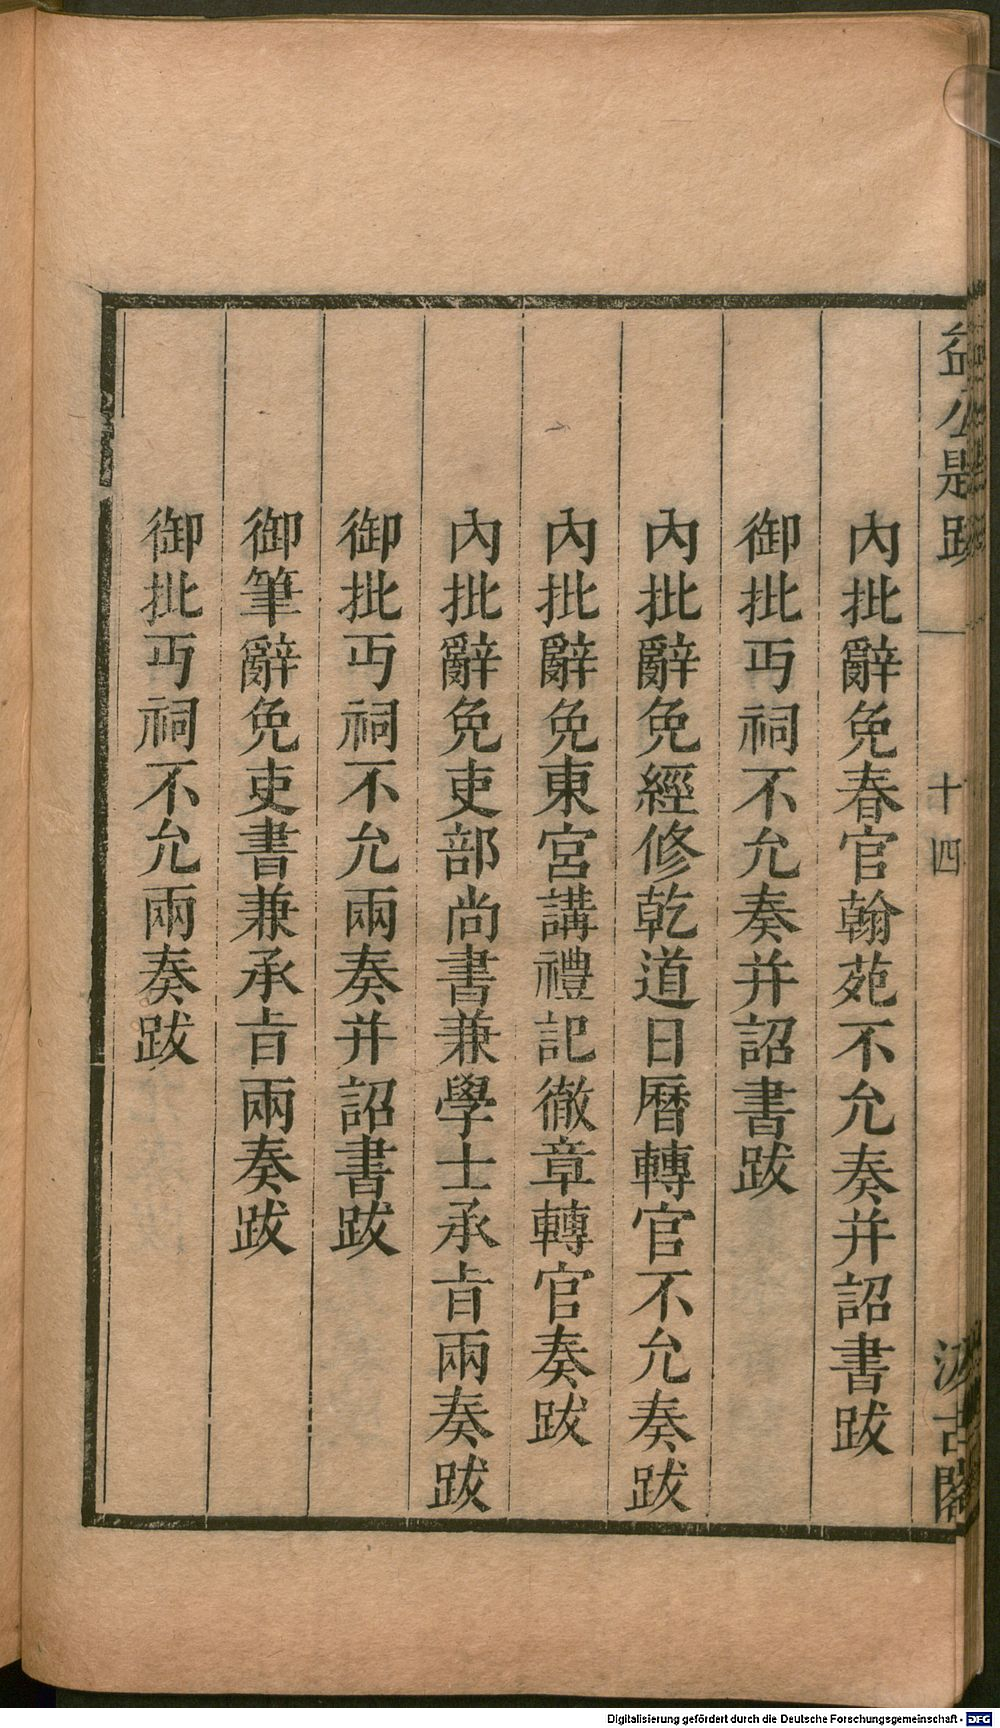 益公題跋
十四
汲古閣
內批辭免春官翰苑不允奏并詔書跋
御批丐祠不允奏并詔書跋
內批辭免經修乾道日曆轉官不允奏跋
內批辭免東宮講禮記徹章轉官奏跋
內批辭免吏部尚書兼學士承旨兩奏跋
御批丐祠不允兩奏并詔書跋
御筆辭免吏書兼承旨兩奏跋
御批丐祠不允兩奏跋
Digitalisierung gefördert durch die Deutsche Forschungsgemeinschaft - DFG